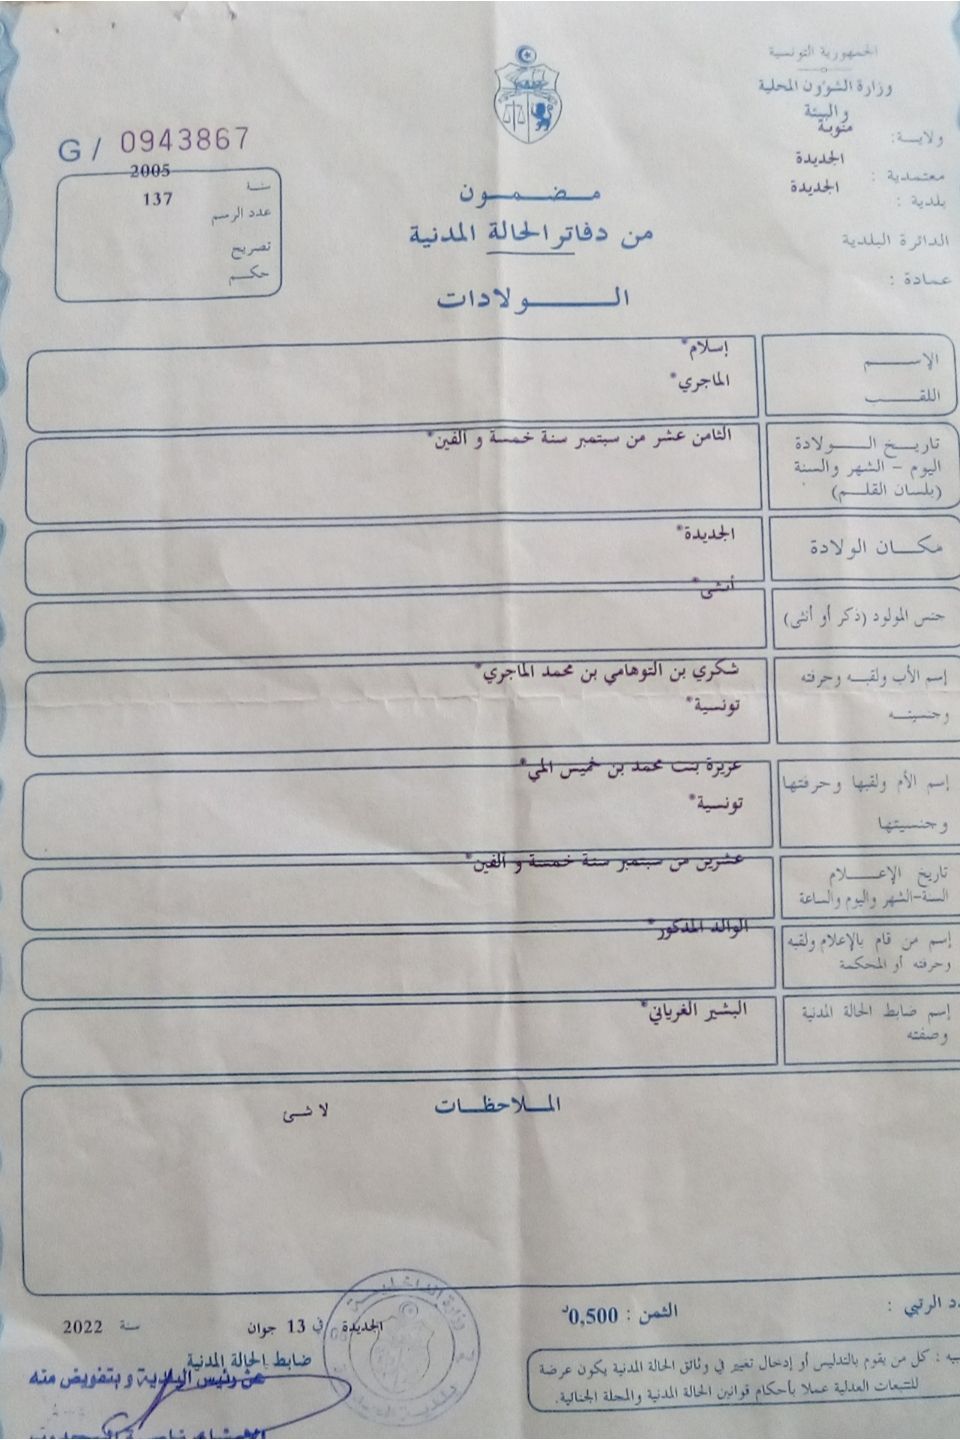 الجمهورية التونسية
وزارة الشؤون المحلية
والبيئة
ولاية: منوبة
معتمدية : الجديدة
بلدية : الجديدة
الدائرة البلدية
عمادة :
G / 0943867
سنة 2005
عدد الرسم 137
تصريح
حكم
مضمون
من دفاتر الحالة المدنية
الولادات
الإسم إسلام*
اللقب الماجري*
تاريخ الولادة الثامن عشر من سبتمبر سنة خمسة و الفين*
اليوم - الشهر والسنة
(بلسان القلم)
مكان الولادة الجديدة*
جنس المولود (ذكر أو أنثى) أنثى*
إسم الأب ولقبه وحرفته شكري بن التوهامي بن محمد الماجري*
وجنسيته تونسية*
إسم الأم ولقبها وحرفتها عزيزة بنت محمد بن خميس المي*
وجنسيتها تونسية*
تاريخ الإعلام عشرين من سبتمبر سنة خمسة و الفين*
السنة-الشهر واليوم والساعة
إسم من قام بالإعلام ولقبه الوالد المذكور*
وحرفته أو المحكمة
إسم ضابط الحالة المدنية البشير الغرياني*
وصفته
الملاحظات
لا شئ
الرتبي :
الثمن : 0,500د
الجديدة في 13 جوان سنة 2022
ضابط الحالة المدنية
عن رئيس البلدية و بتفويض منه
كل من يقوم بالتدليس أو إدخال تغيير في وثائق الحالة المدنية يكون عرضة
للتتبعات العدلية عملا بأحكام قوانين الحالة المدنية والمجلة الجنائية.